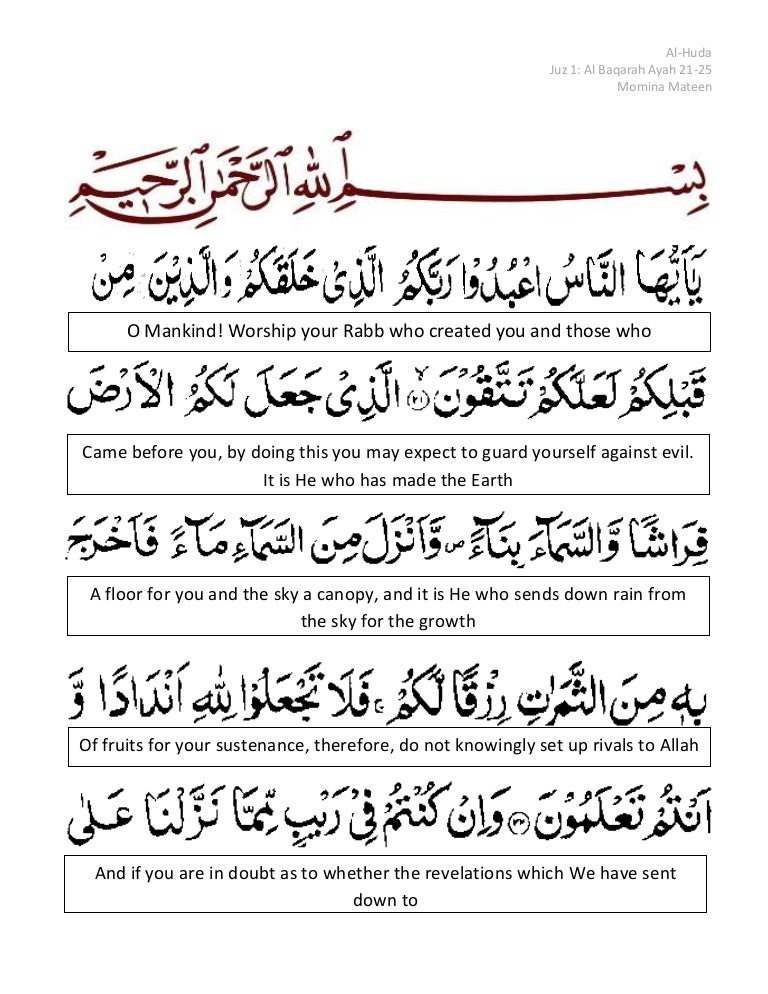 Al-Huda
Juz 1: Al Baqarah Ayah 21-25
Momina Mateen
بِسْمِ ٱللهِ ٱلرَّحْمٰنِ ٱلرَّحِيمِ
يٰٓاَيُّهَا النَّاسُ اعْبُدُوْا رَبَّكُمُ الَّذِىْ خَلَقَكُمْ وَالَّذِيْنَ مِنْ
O Mankind! Worship your Rabb who created you and those who
قَبْلِكُمْ لَعَلَّكُمْ تَتَّقُوْنَ ﴿۲۱﴾ۙ الَّذِىْ جَعَلَ لَكُمُ الْاَرْضَ
Came before you, by doing this you may expect to guard yourself against evil.
It is He who has made the Earth
فِرَاشًا وَّالسَّمَآءَ بِنَآءً ۪ وَّاَنْزَلَ مِنَ السَّمَآءِ مَآءً فَاَخْرَجَ
A floor for you and the sky a canopy, and it is He who sends down rain from
the sky for the growth
بِهٖ مِنَ الثَّمَرٰتِ رِزْقًا لَّكُمْ ۚ فَلَا تَجْعَلُوْا لِلّٰهِ اَنْدَادًا وَّ
Of fruits for your sustenance, therefore, do not knowingly set up rivals to Allah
اَنْتُمْ تَعْلَمُوْنَ ﴿۲۲﴾ وَاِنْ كُنْتُمْ فِىْ رَيْبٍ مِّمَّا نَزَّلْنَا عَلٰى
And if you are in doubt as to whether the revelations which We have sent
down to